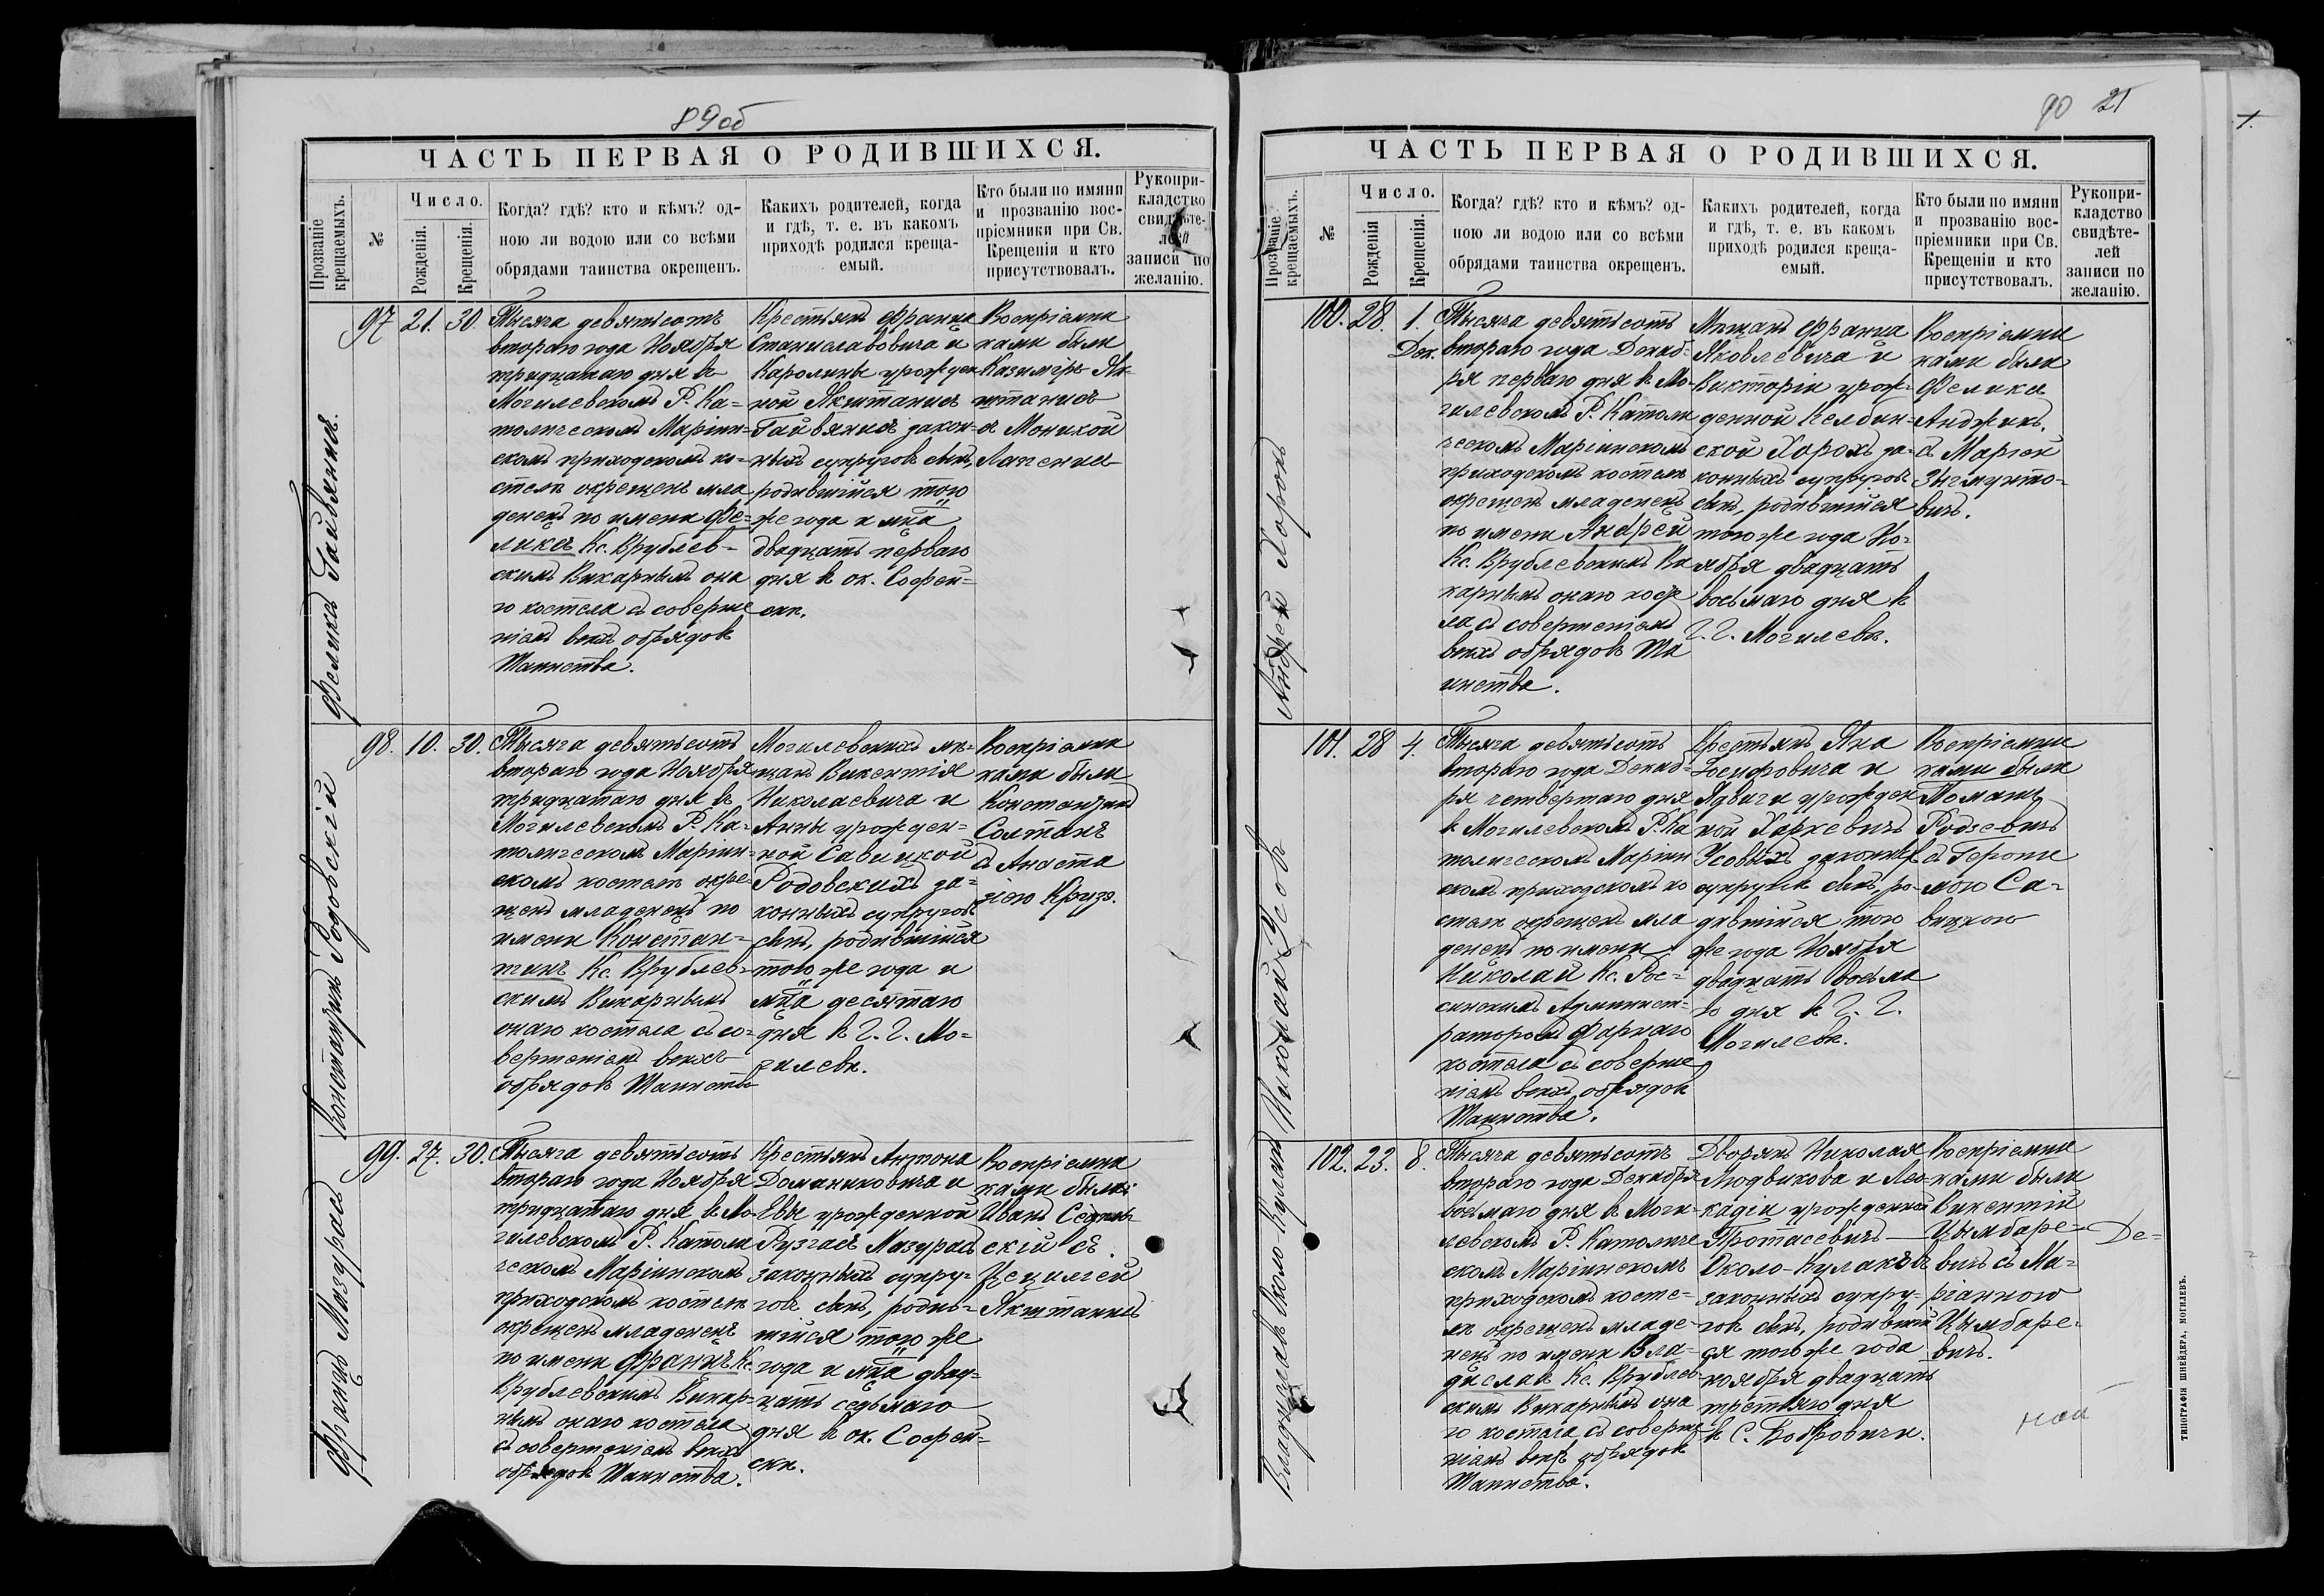 89 об
ЧАСТЬ ПЕРВАЯ О РОДИВШИХСЯ.
Прозваніе крещаемыхъ.
№
Число.
Рожденія.
Крещенія.
Когда? гдѣ? кто и кѣмъ? од-
ною ли водою или со всѣми
обрядами таинства окрещенъ.
Какихъ родителей, когда
и гдѣ, т. е. въ какомъ
приходѣ родился креща-
емый.
Кто были по имяни
и прозванію вос-
пріемники при Св.
Крещеніи и кто
присутствовалъ.
Рукопри-
кладство
свидѣте-
лей
записи по
желанію.
Феликсъ Гайвянисъ.
97
21.
30.
Тысяча девятьсотъ
втораго года Ноября
тридцатаго дня въ
Могилевскомъ Р. Ка=
толическомъ Маріин-
скомъ приходскомъ ко-
стелѣ окрещенъ мла
денецъ по имени Фе=
ликсъ Кс. Врублев-
скимъ Викарнымъ она
го костела съ соверше
ніемъ всѣхъ обрядовъ
Таинства.
Крестьянъ Франца
Станиславовича и
Каролины урожден
ной Якштанисъ
Гайвянисъ закон-
ныхъ супруговъ сынъ,
родившійся того
же года и мца
двадцать перваго
дня въ ок. Софей=
скѣ.
Воспріемни
ками были
Казимiръ Як-
штанисъ
съ Моникой
Лапенисъ
Константинъ Родовскій
98.
10.
30.
Тысяча девятьсотъ
втораго года Ноября
тридцатаго дня въ
Могилевскомъ Р. Ка=
толическомъ Маріин-
скомъ костелѣ окре-
щенъ младенецъ по
имени Констан=
тинъ Кс. Врублев-
скимъ Викарнымъ
онаго костела съ со-
вершеніемъ всѣхъ
обрядовъ Таинства
Могилевскихъ мѣ-
щанъ Викентія
Николаевича и
Анны урожден=
ной Савицкой
Родовскихъ за=
конныхъ супруговъ
сынъ, родившійся
того же года и
мца десятаго
дня въ Г. Г. Мо=
гилевѣ.
Воспріемни
ками были
Константинъ
Солтанъ
съ Анаста
зіею Крузе.
Францъ Мазурасъ
99.
27.
30.
Тысяча девятьсотъ
втораго года Ноября
тридцатаго дня въ Мо-
гилевскомъ Р. Католи
ческомъ Маріинскомъ
приходскомъ костелѣ
окрещенъ младенецъ
по имени Францъ Кс.
Врублевскимъ Викар-
нымъ онаго костела
съ совершеніемъ всѣхъ
обрядовъ Таинства.
Крестьянъ Антона
Доманиковича и
Евы урожденной
Рузгасъ Мазурасъ
законныхъ супру-
говъ сынъ, родив-
шійся того же
года и мца двад-
цать седьмаго
дня въ ок. Софей-
скѣ.
Воспріемни
ками были
Иванъ
скій съ
Цецилiей
Якштанисъ
90 21
ЧАСТЬ ПЕРВАЯ О РОДИВШИХСЯ.
Прозваніе крещаемыхъ.
№
Число.
Рожденія
Крещенія.
Когда? гдѣ? кто и кѣмъ? од-
ною ли водою или со всѣми
обрядами таинства окрещенъ.
Какихъ родителей, когда
и гдѣ, т. е. въ какомъ
приходѣ родился креща-
емый.
Кто были по имяни
и прозванію вос-
пріемники при Св.
Крещеніи и кто
присутствовалъ.
Рукопри-
кладство
свидѣте-
лей
записи по
желанію.
Андрей Хоронъ
100.
28.
1.
Дек.
Тысяча девятьсотъ
втораго года Декаб-
ря перваго дня въ Мо-
гилевскомъ Р. Католи
ческомъ Маріинскомъ
приходскомъ костелѣ
окрещенъ младенецъ
по имени Андрей
Кс. Врублевскимъ Ви
карнымъ онаго косте
ла съ совершеніемъ
всѣхъ обрядовъ Та
инства.
Мѣщанъ Франца
Яковлевича и
Викторіи урож-
денной Келбин-
ской Хоронъ за-
конныхъ супруговъ
сынъ, родившійся
того же года Но-
ября двадцать
восьмаго дня въ
Г. Г. Могилевѣ.
Воспріемни
ками были
Феликсъ
Анджикъ,
съ Маріей
Зыгмунто-
вичъ.
Николай Усовъ
101.
28
4.
Тысяча девятьсотъ
втораго года Декаб-
ря четвертаго дня
въ Могилевскомъ Р. Ка
толическомъ Маріин
скомъ приходскомъ ко
стелѣ окрещенъ мла
денецъ по имени
Николай Кс. Рос-
синскимъ Админист-
раторомъ Фарнаго
костела съ соверше
ніемъ всѣхъ обрядовъ
Таинства.
Крестьянъ Яна
Іосифовича и
Ядвиги урожден
ной Харкевичъ
Усовыхъ законныхъ
супруговъ сынъ, ро-
дившійся того
же года Ноября
двадцать восьма
го дня въ Г. Г.
Могилевѣ.
Воспріемни
ками были
Романъ
Родзевичъ
съ Герони
мою Са-
вицкою
Владиславъ Около-Кулакъ
102.
23.
8.
Тысяча девятьсотъ
втораго года Декабря
восьмаго дня въ Моги-
левскомъ Р. Католиче
скомъ Маріинскомъ
приходскомъ косте-
лѣ окрещенъ младе-
нецъ по имени Вла-
диславъ Кс. Врублев-
скимъ Викарнымъ она
го костела съ соверше-
ніемъ всѣхъ обрядовъ
Таинства.
Дворянъ Николая
Людвикова и Лео-
кадіи урожденной
Протасевичъ
Около-Кулаковъ
законныхъ супру-
говъ сынъ, родившій
ся того же года
ноября двадцать
третьяго дня
въ С. Бобровичи.
Воспріемни
ками были
Викентій
Цымбаре-
вичъ съ Ма-
ріанною
Цымбаре-
вичъ.
Де=
ной
ТИПОГРАФІЯ ШНЕЙДЕРА, МОГИЛЕВЪ.